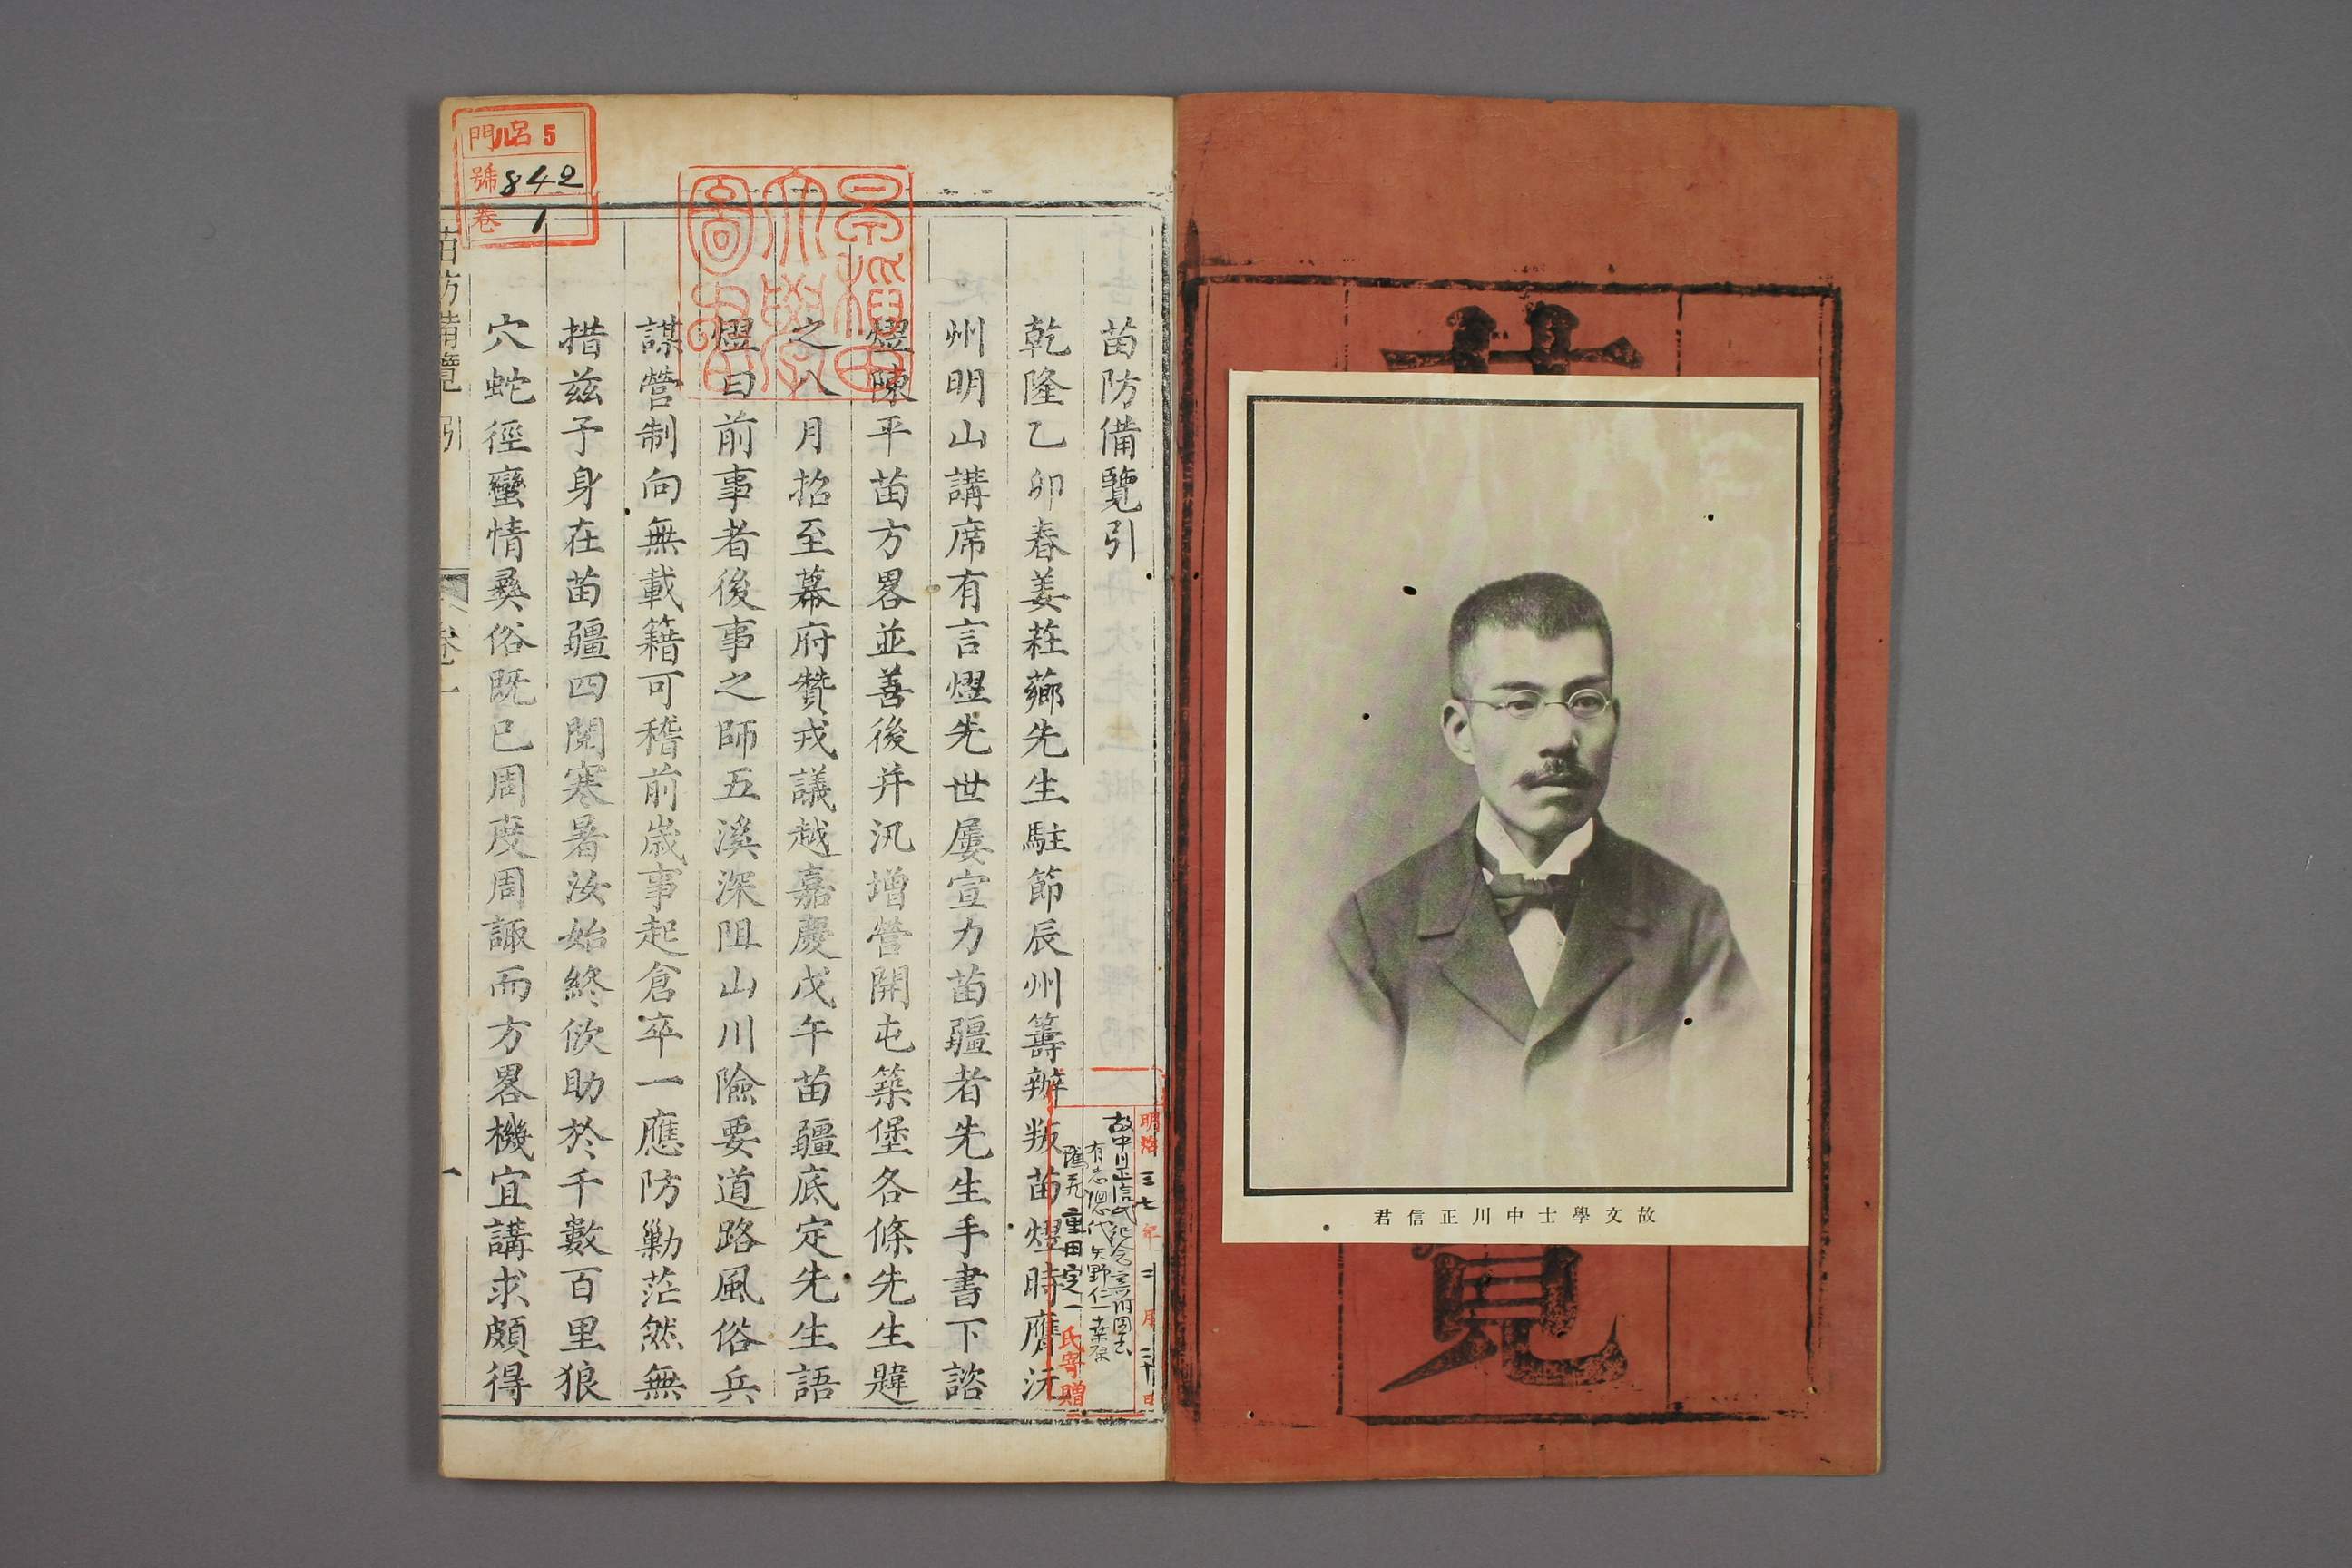 故文學士中川正信君
苗防備覽引
乾隆乙卯春姜莊薌先生駐節辰州籌辦叛苗熤時膺沅
州明山講席有言熤先世屢宣力苗疆者先生手書下諮
熤陳平苗方畧並善後并汛增營開屯築堡各條先生韙
之八月招至幕府贊戎議越嘉慶戊午苗疆底定先生語
熤曰前事者後事之師五溪深阻山川險要道路風俗兵
謀營制向無載籍可稽前歲事起倉卒一應防勦茫然無
措兹予身在苗疆四閱寒暑汝始終佽助於千數百里狼
穴蛇徑蠻情彜俗既已周度周諏而方畧機宜講求頗得
苗防備覽 引 卷一 一
門 呂 5
號 842
卷 1
早稲田大學圖書
明治三七年二月二十日
故中川正信氏紀念
有志總代 矢野仁一
重田定一氏寄贈
覽